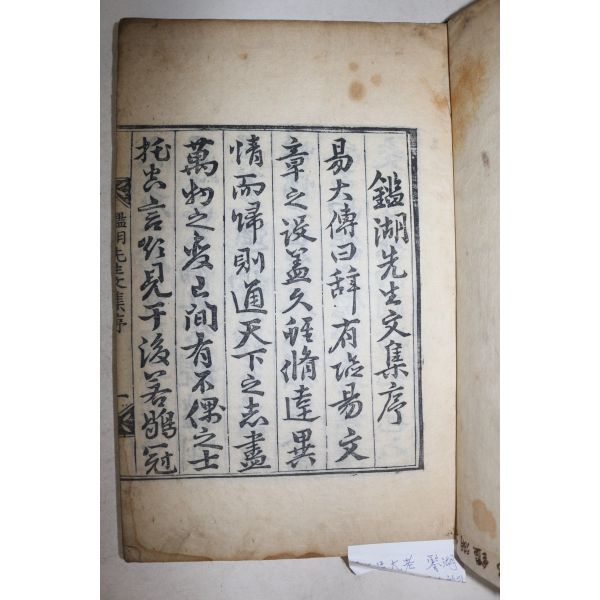 鑑湖先生文集序
易大傳曰辭有險易文
章之設盖久雖脩達異
情而歸則通天下之志盡
萬物之変已間有不偶之士
托空言以見于後若鶡冠
鑑湖先生文集序
一